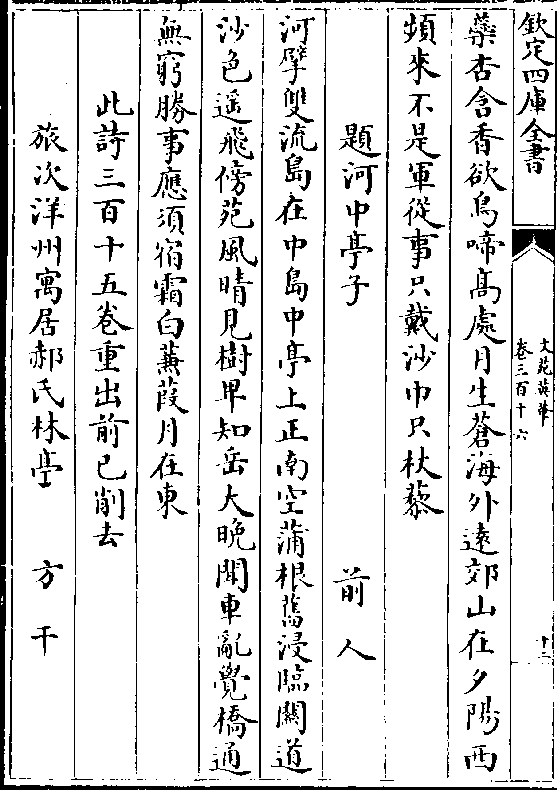 欽定四庫全書
文苑英華
卷三百十六
十二
藥杏含香欲鳥啼高處月生蒼海外遠郊山在夕陽西
頻來不是軍從事只戴沙巾只杖藜
題河中亭子 前人
河擘雙流島在中島中亭上正南空蒲根舊浸臨關道
沙色遥飛傍苑風晴見樹卑知岳大晚聞車亂覺橋通
無窮勝事應須宿霜白蒹葭月在東
此詩三百十五卷重出前已削去
旅次洋州寓居郝氏林亭 方干